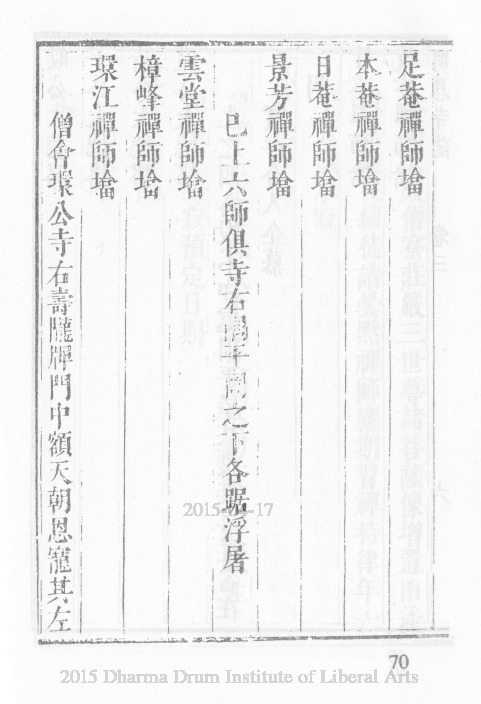 足菴禪師㙮
本菴禪師㙮
日菴禪師㙮
景芳禪師㙮
巳上六師俱寺右
之下各踞浮屠
雲堂禪師㙮
樟峰禪師㙮
環江禪師㙮
僧會環公寺右壽隴牌門中額天朝恩寵其左
70
2015 Dharma Drum Institute of Liberal Arts